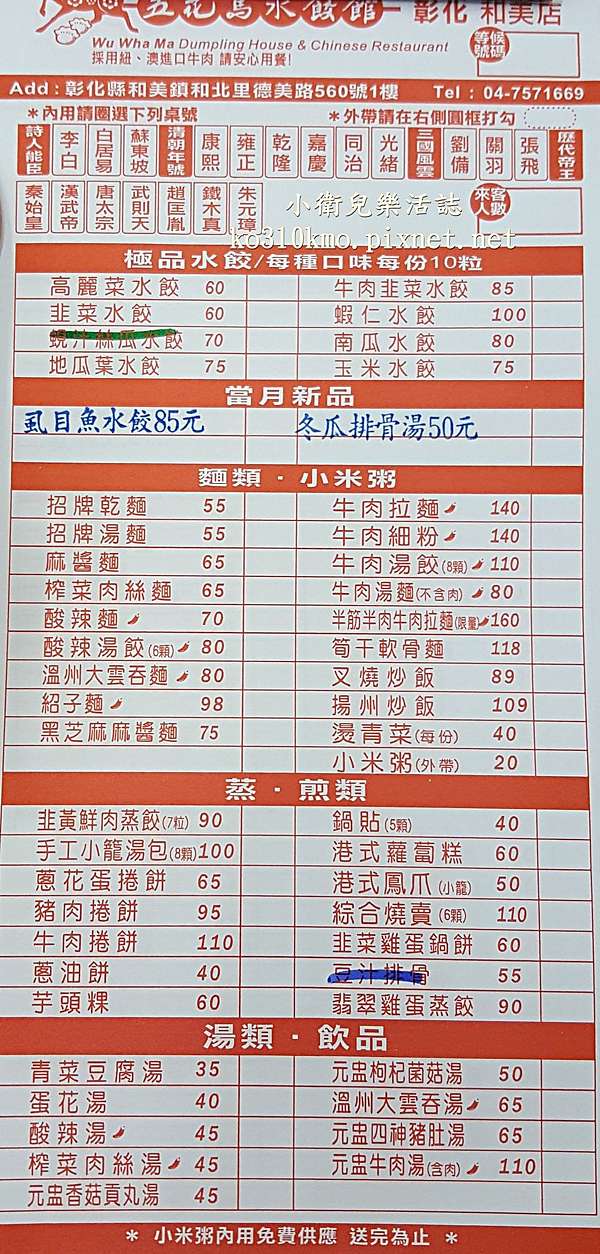 五花馬水餃館 - 彰化 和美店
Wu Wha Ma Dumpling House & Chinese Restaurant
採用紐、澳進口牛肉 請安心用餐!
等候號碼
Add : 彰化縣和美鎮和北里德美路560號1樓 Tel : 04-7571669
*內用請圈選下列桌號 *外帶請在右側圓框打勾
詩人能臣 李白 白居易 蘇東坡 清朝年號 康熙 雍正 乾隆 嘉慶 同治 光緒 三國風雲 劉備 關羽 張飛 歷代帝王
秦始皇 漢武帝 唐太宗 武則天 趙匡胤 鐵木真 朱元璋 來客人數
小衛兒樂活誌
ko310kmo.pixnet.net
極品水餃/每種口味每份10粒
高麗菜水餃 60 牛肉韭菜水餃 85
韭菜水餃 60 蝦仁水餃 100
蜆汁絲瓜水餃 70 南瓜水餃 80
地瓜葉水餃 75 玉米水餃 75
當月新品
虱目魚水餃85元 冬瓜排骨湯50元
麵類 · 小米粥
招牌乾麵 55 牛肉拉麵 140
招牌湯麵 55 牛肉細粉 140
麻醬麵 65 牛肉湯餃(8顆) 110
榨菜肉絲麵 65 牛肉湯麵(不含肉) 80
酸辣麵 70 半筋半肉牛肉拉麵(限量) 160
酸辣湯餃(6顆) 80 筍干軟骨麵 118
溫州大雲吞麵 80 叉燒炒飯 89
紹子麵 98 揚州炒飯 109
黑芝麻麻醬麵 75 燙青菜(每份) 40
小米粥(外帶) 20
蒸 · 煎類
韭黃鮮肉蒸餃(7粒) 90 鍋貼(5顆) 40
手工小籠湯包(8顆) 100 港式蘿蔔糕 60
蔥花蛋捲餅 65 港式鳳爪(小籠) 50
豬肉捲餅 95 綜合燒賣(6顆) 110
牛肉捲餅 110 韭菜雞蛋鍋餅 60
蔥油餅 40 豆汁排骨 55
芋頭粿 60 翡翠雞蛋蒸餃 90
湯類 · 飲品
青菜豆腐湯 35 元盅枸杞菌菇湯 50
蛋花湯 40 溫州大雲吞湯 65
酸辣湯 45 元盅四神豬肚湯 65
榨菜肉絲湯 45 元盅牛肉湯(含肉) 110
元盅香菇貢丸湯 45
* 小米粥內用免費供應 送完為止 *